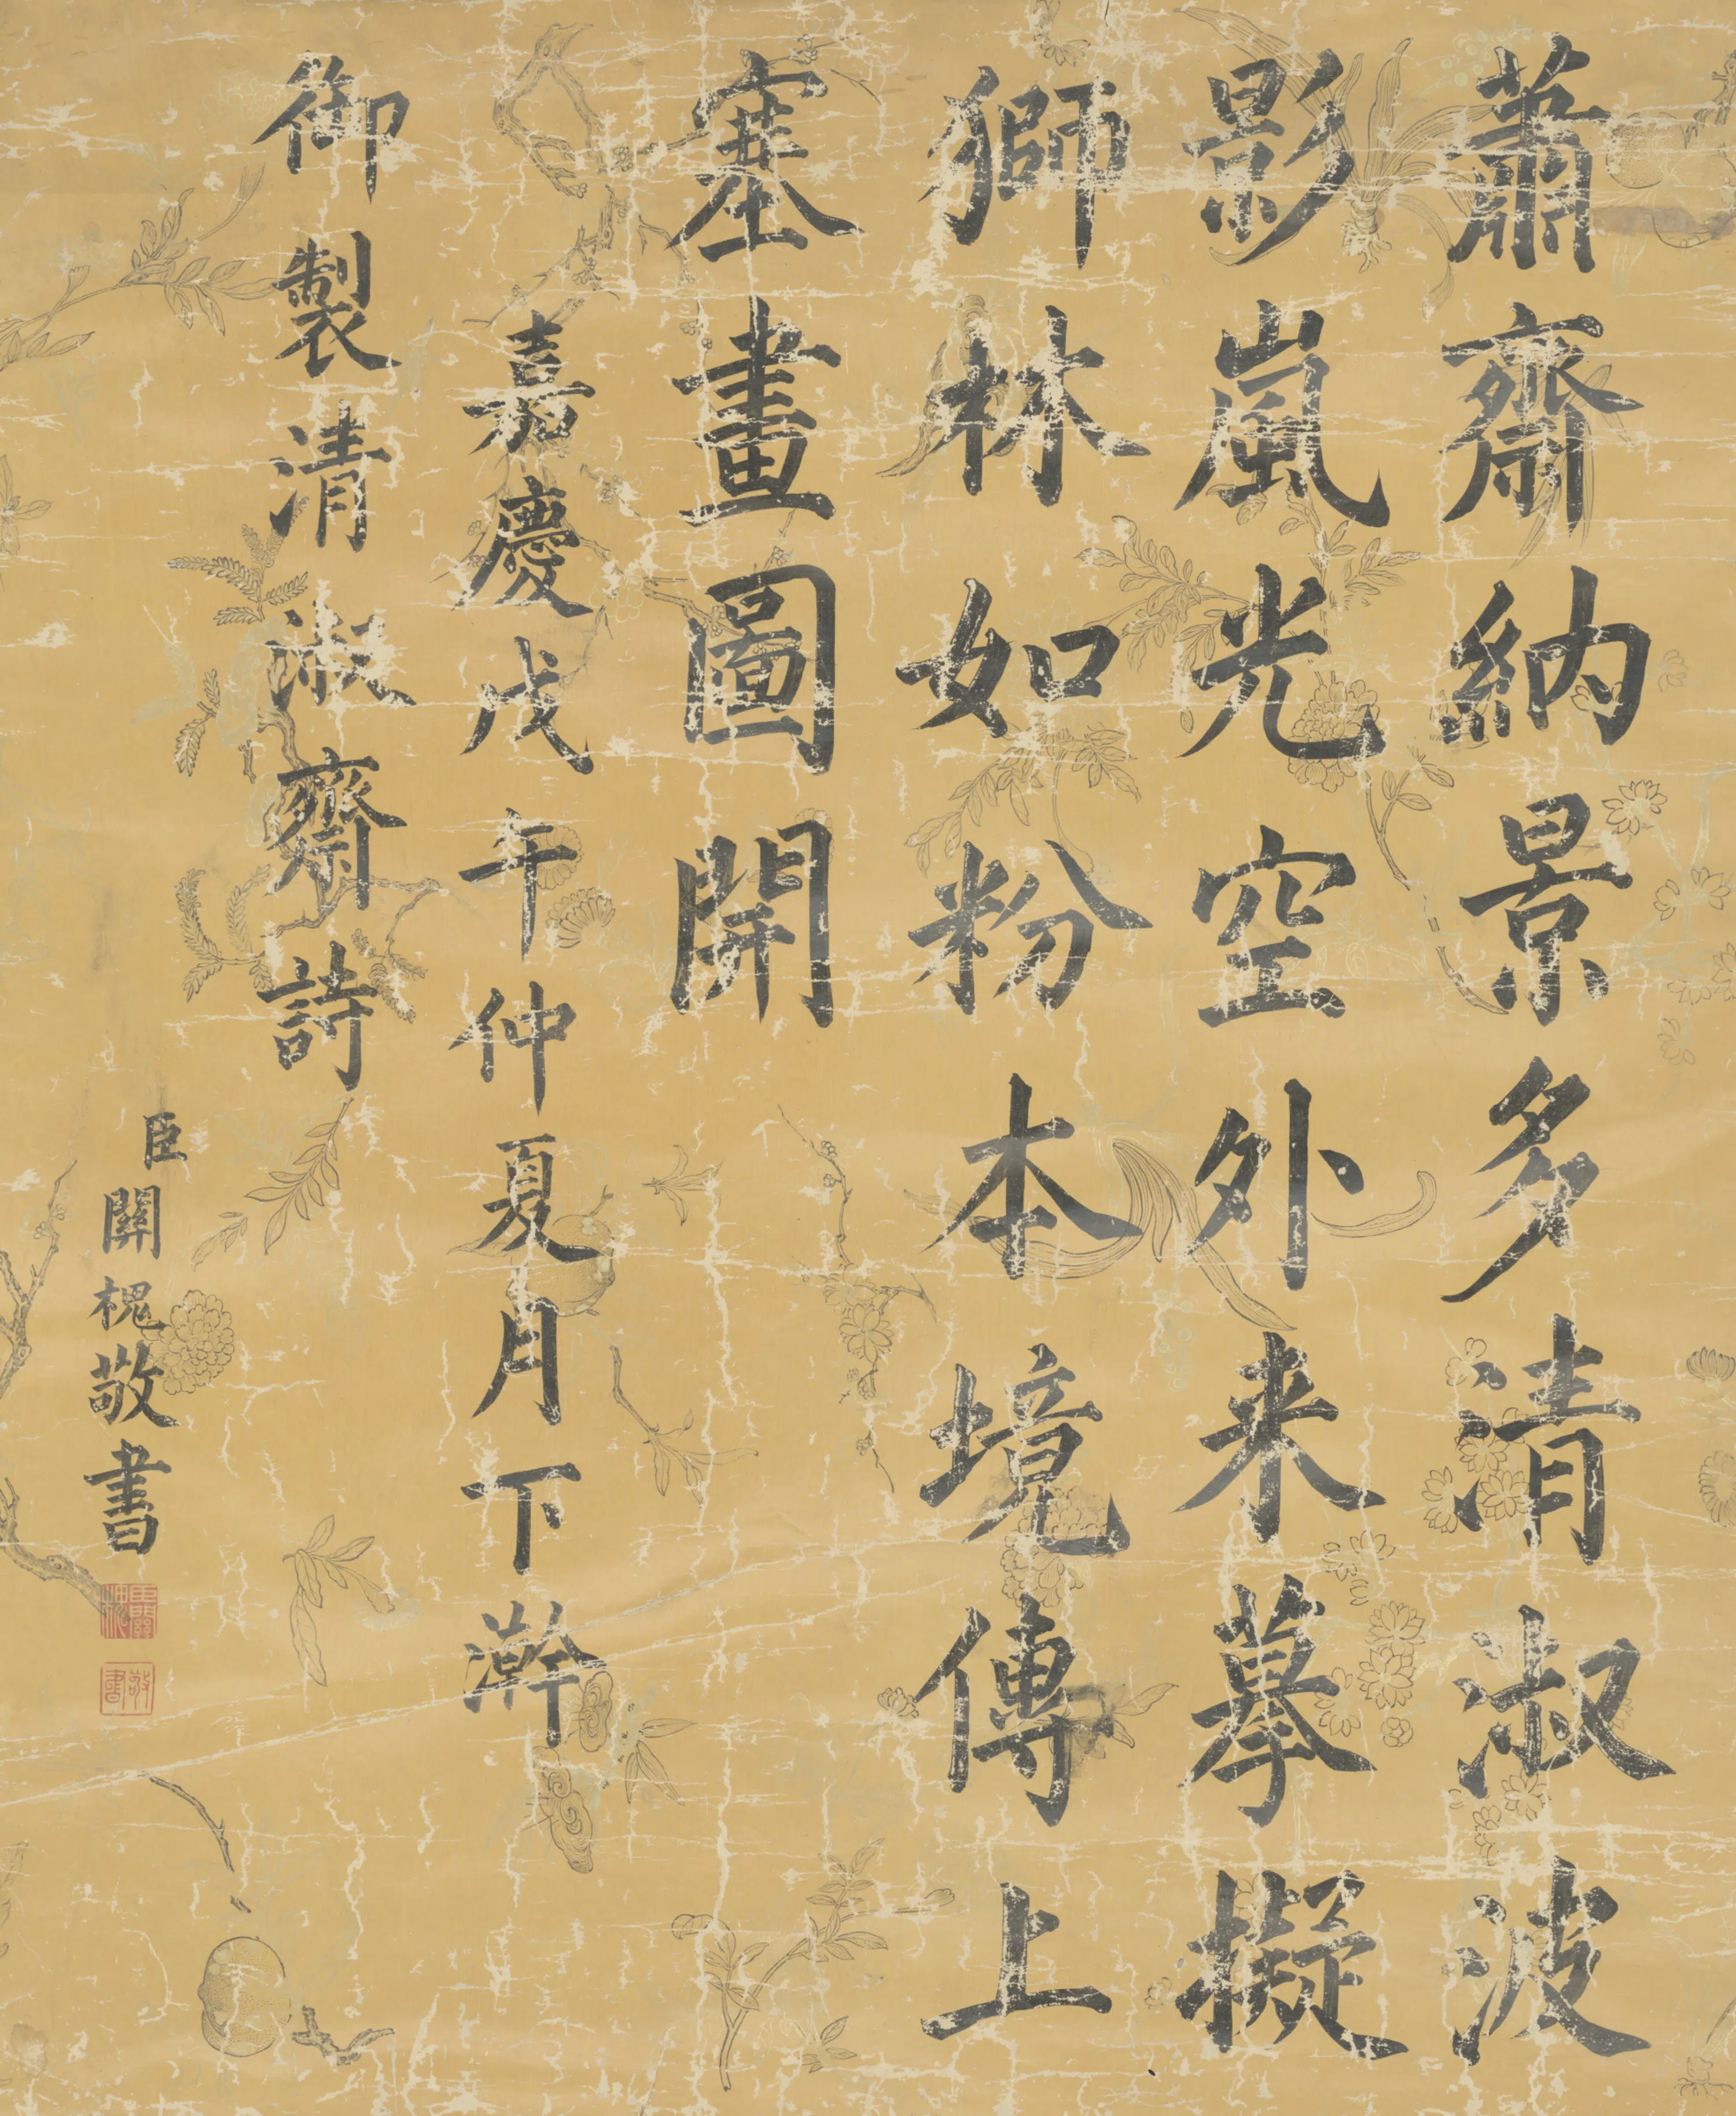 蕭齋納景多清淑波
影嵐光空外来摹擬
獅林如粉本境傳上
塞畫圖開
嘉慶戊午仲夏月下澣
御製清淑齋詩
臣關槐敬書
臣關槐
敬書